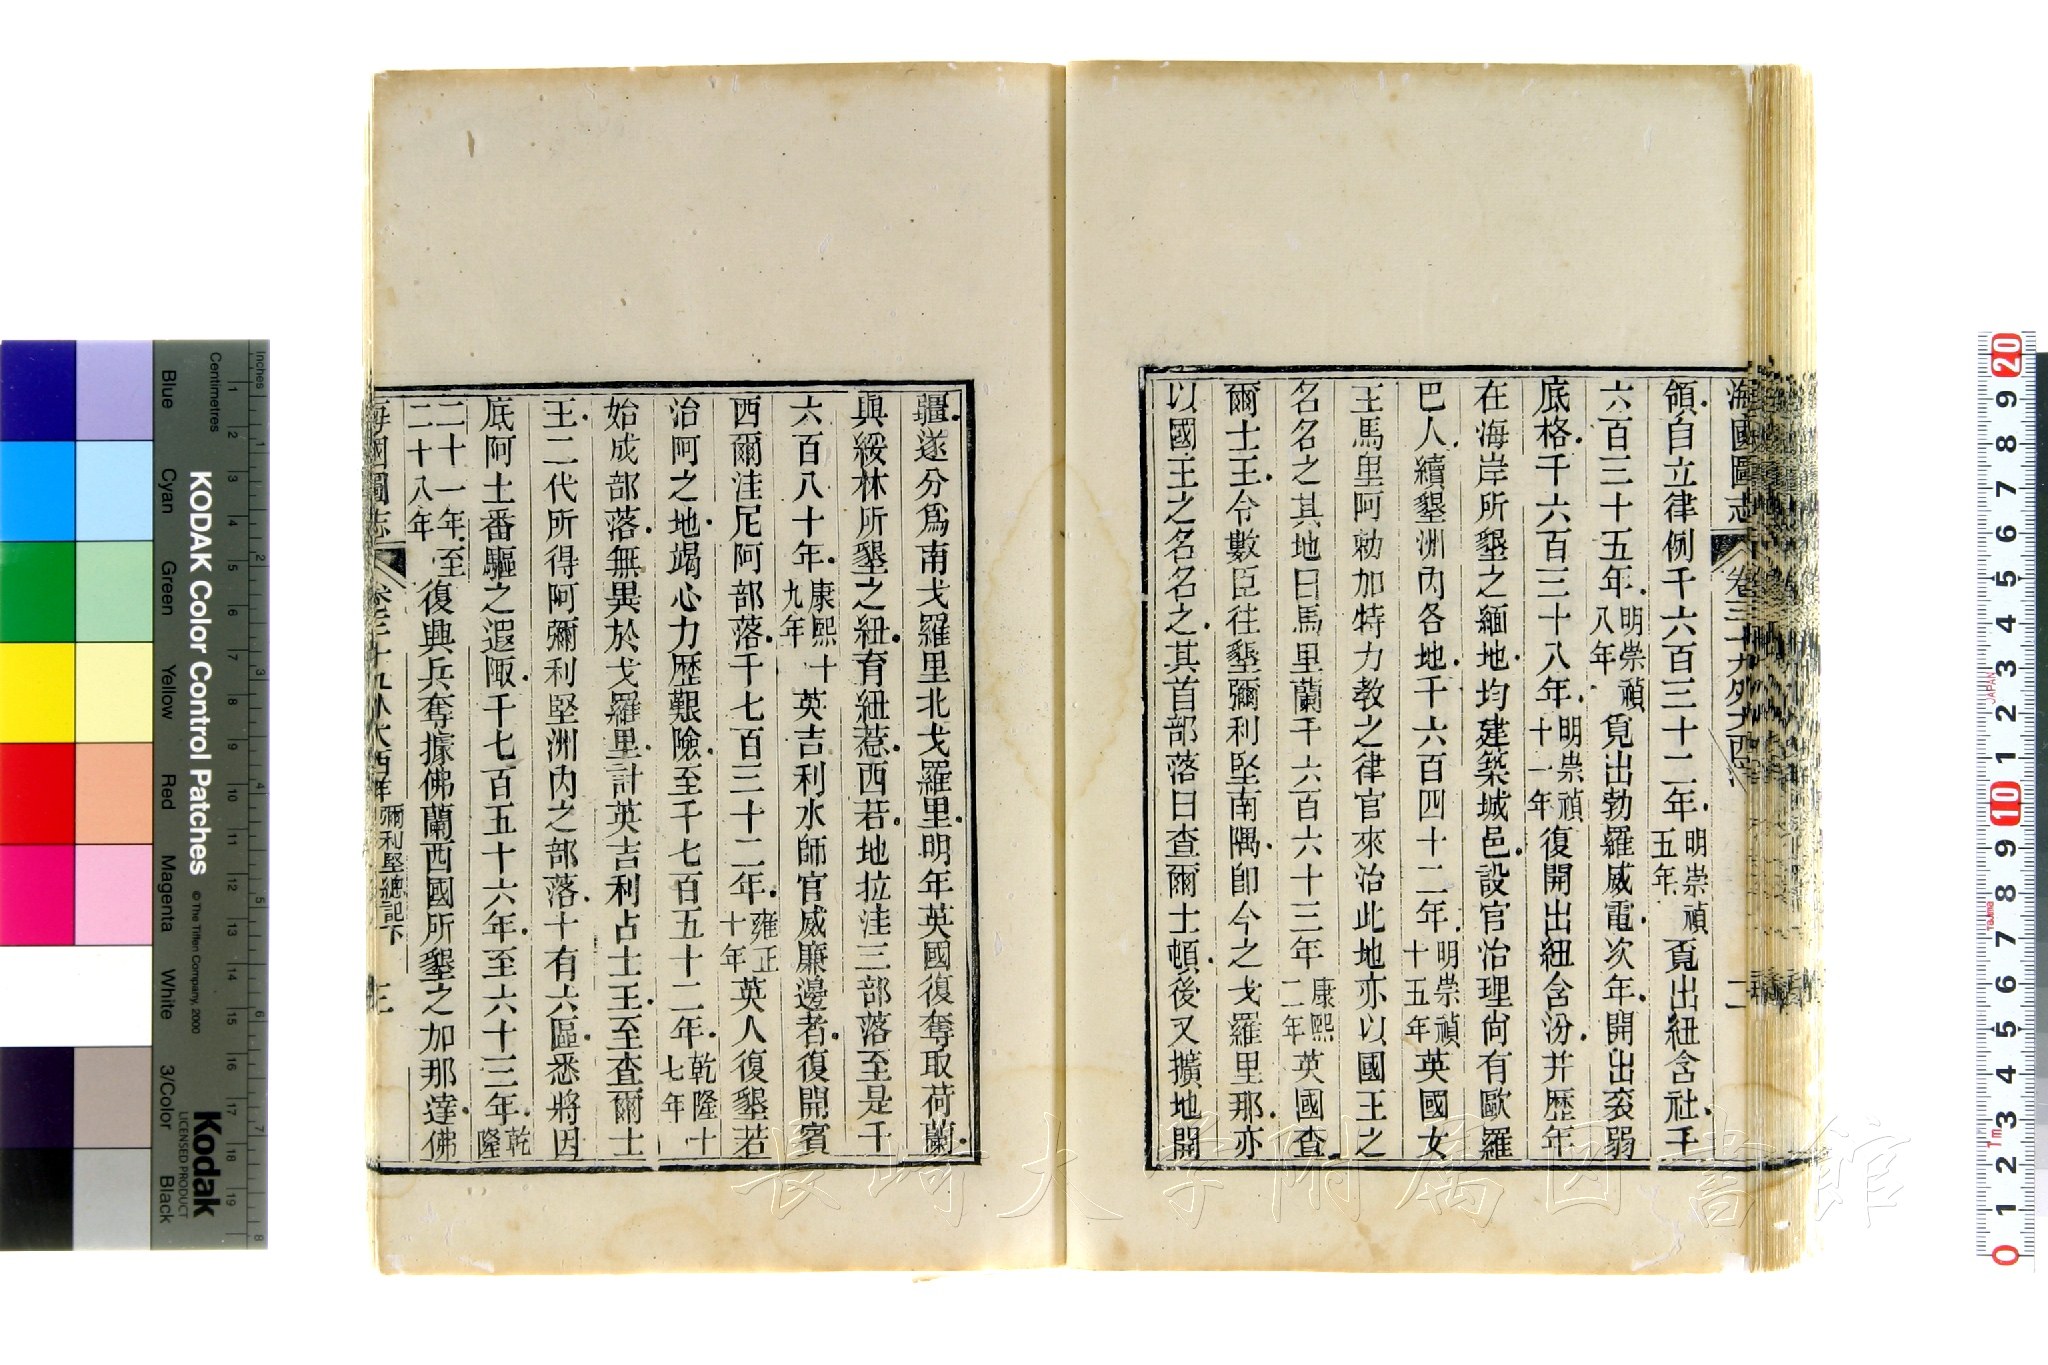 海國圖志 卷三十九外大西洋 二
領自立律例千六百三十二年明崇禎五年覓出紐含社千
六百三十五年明崇禎八年覓出勃羅威電次年開出袞弱
底格千六百三十八年明崇禎十一年復開出紐含汾并歷年
在海岸所墾之緬地均建築城邑設官治理尙有歐羅
巴人續墾洲內各地千六百四十二年明崇禎十五年英國女
王馬里阿勅加特力教之律官來治此地亦以國王之
名名之其地曰馬里蘭千六百六十三年康熙二年英國查
爾士王令數臣往墾彌利堅南隅卽今之戈羅里那亦
以國王之名名之其首部落曰查爾士頓後又擴地開
疆遂分爲南戈羅里北戈羅里明年英國復奪取荷蘭
與綏林所墾之紐育紐惹西若地拉洼三部落至是千
六百八十年康熙十九年英吉利水師官威廉邊者復開賓
西爾洼尼阿部落千七百三十二年雍正十年英人復墾若
治阿之地竭心力歷艱險至千七百五十二年乾隆十七年
始成部落無異於戈羅里計英吉利占士王至查爾士
王二代所得阿彌利堅洲內之部落十有六區悉將因
底阿土番驅之遐陬千七百五十六年至六十三年乾隆
二十一年至二十八年復興兵奪據佛蘭西國所墾之加那達佛
海國圖志 卷三十九外大西洋 彌利堅總記下 三
長崎大学附属図書館
KODAK Color Control Patches © The Tiffen Company, 2000
Kodak
LICENSED PRODUCT
Inches
Centimetres
1 2 3 4 5 6 7 8 9 10 11 12 13 14 15 16 17 18 19
1 2 3 4 5 6 7 8
Blue
Cyan
Green
Yellow
Red
Magenta
White
3/Color
Black
20 9 8 7 6 5 4 3 2 1 10 9 8 7 6 5 4 3 2 1 0
JAPAN
Tajima
1m